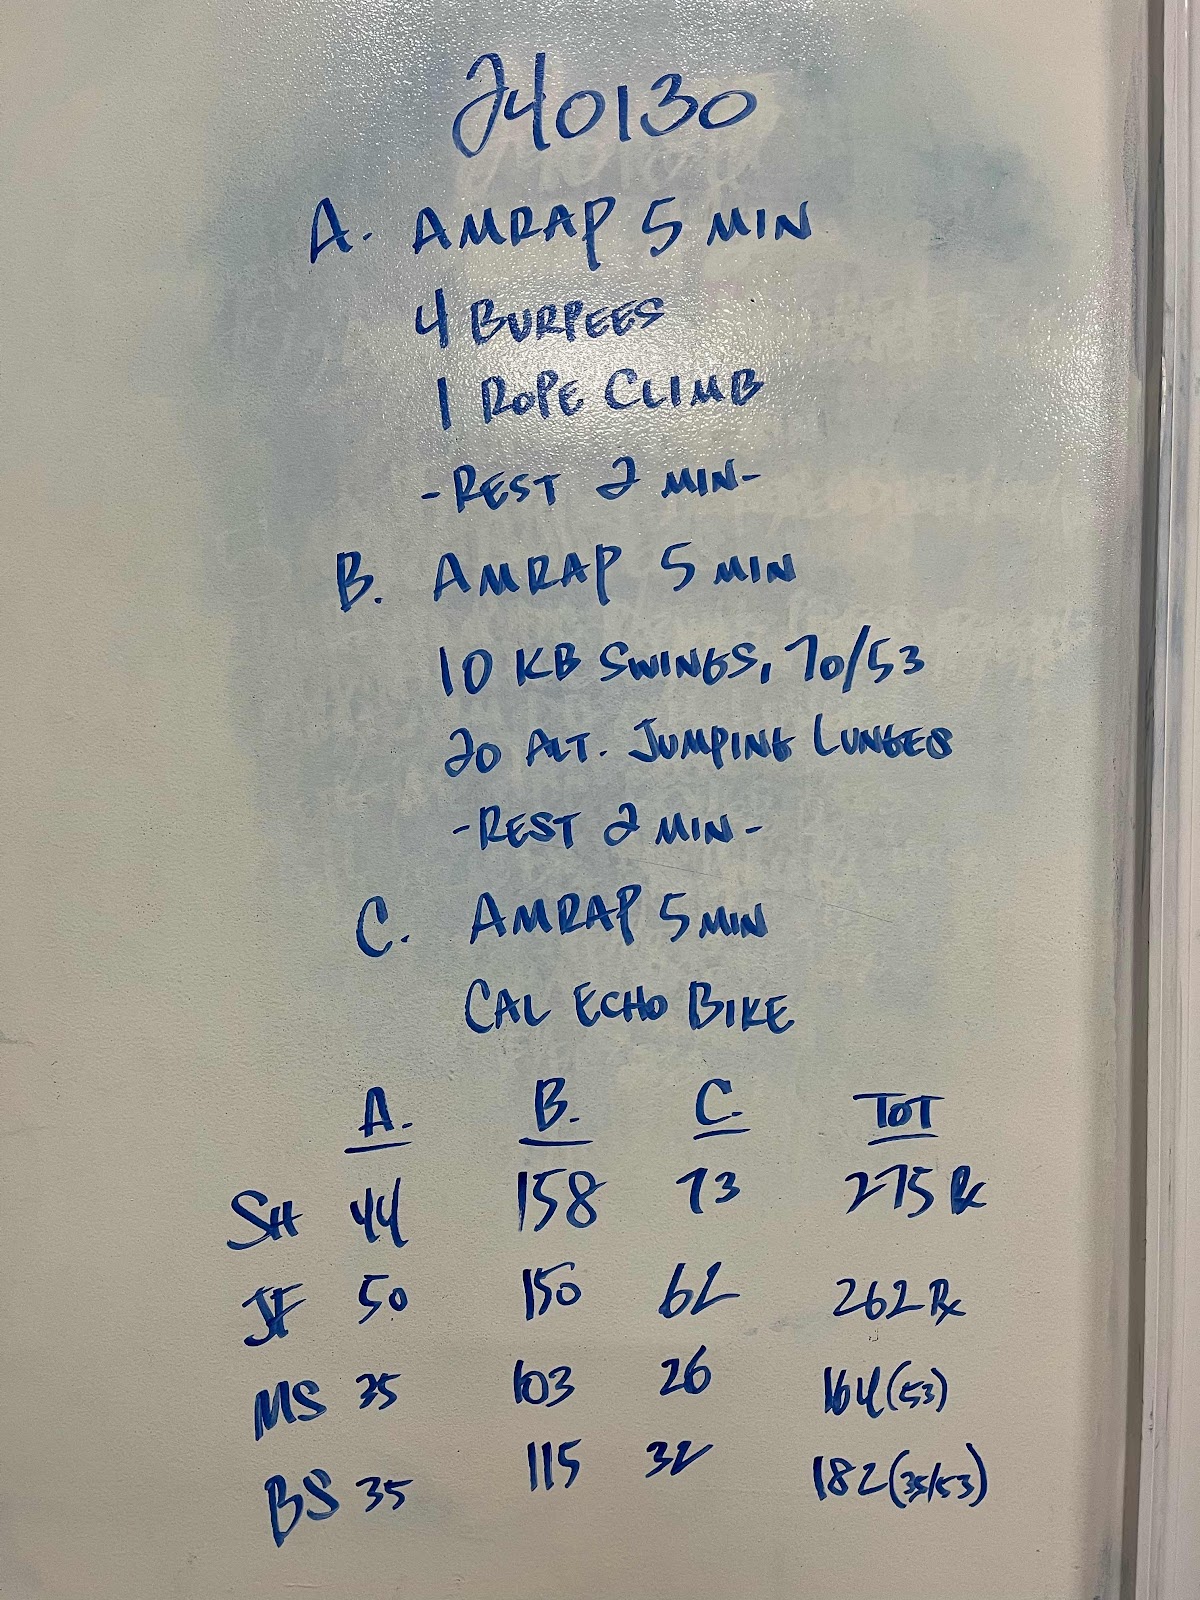 240130
A. AMRAP 5 MIN
4 BURPEES
1 ROPE CLIMB
-REST 2 MIN-
B. AMRAP 5 MIN
10 KB SWINGS, 70/53
20 ALT. JUMPING LUNGES
-REST 2 MIN-
C. AMRAP 5 MIN
CAL ECHO BIKE
A. B. C. TOT
SH 44 158 73 275 Rx
JF 50 150 62 262 Rx
MS 35 103 26 164 (53)
BS 35 115 32 182 (35/53)